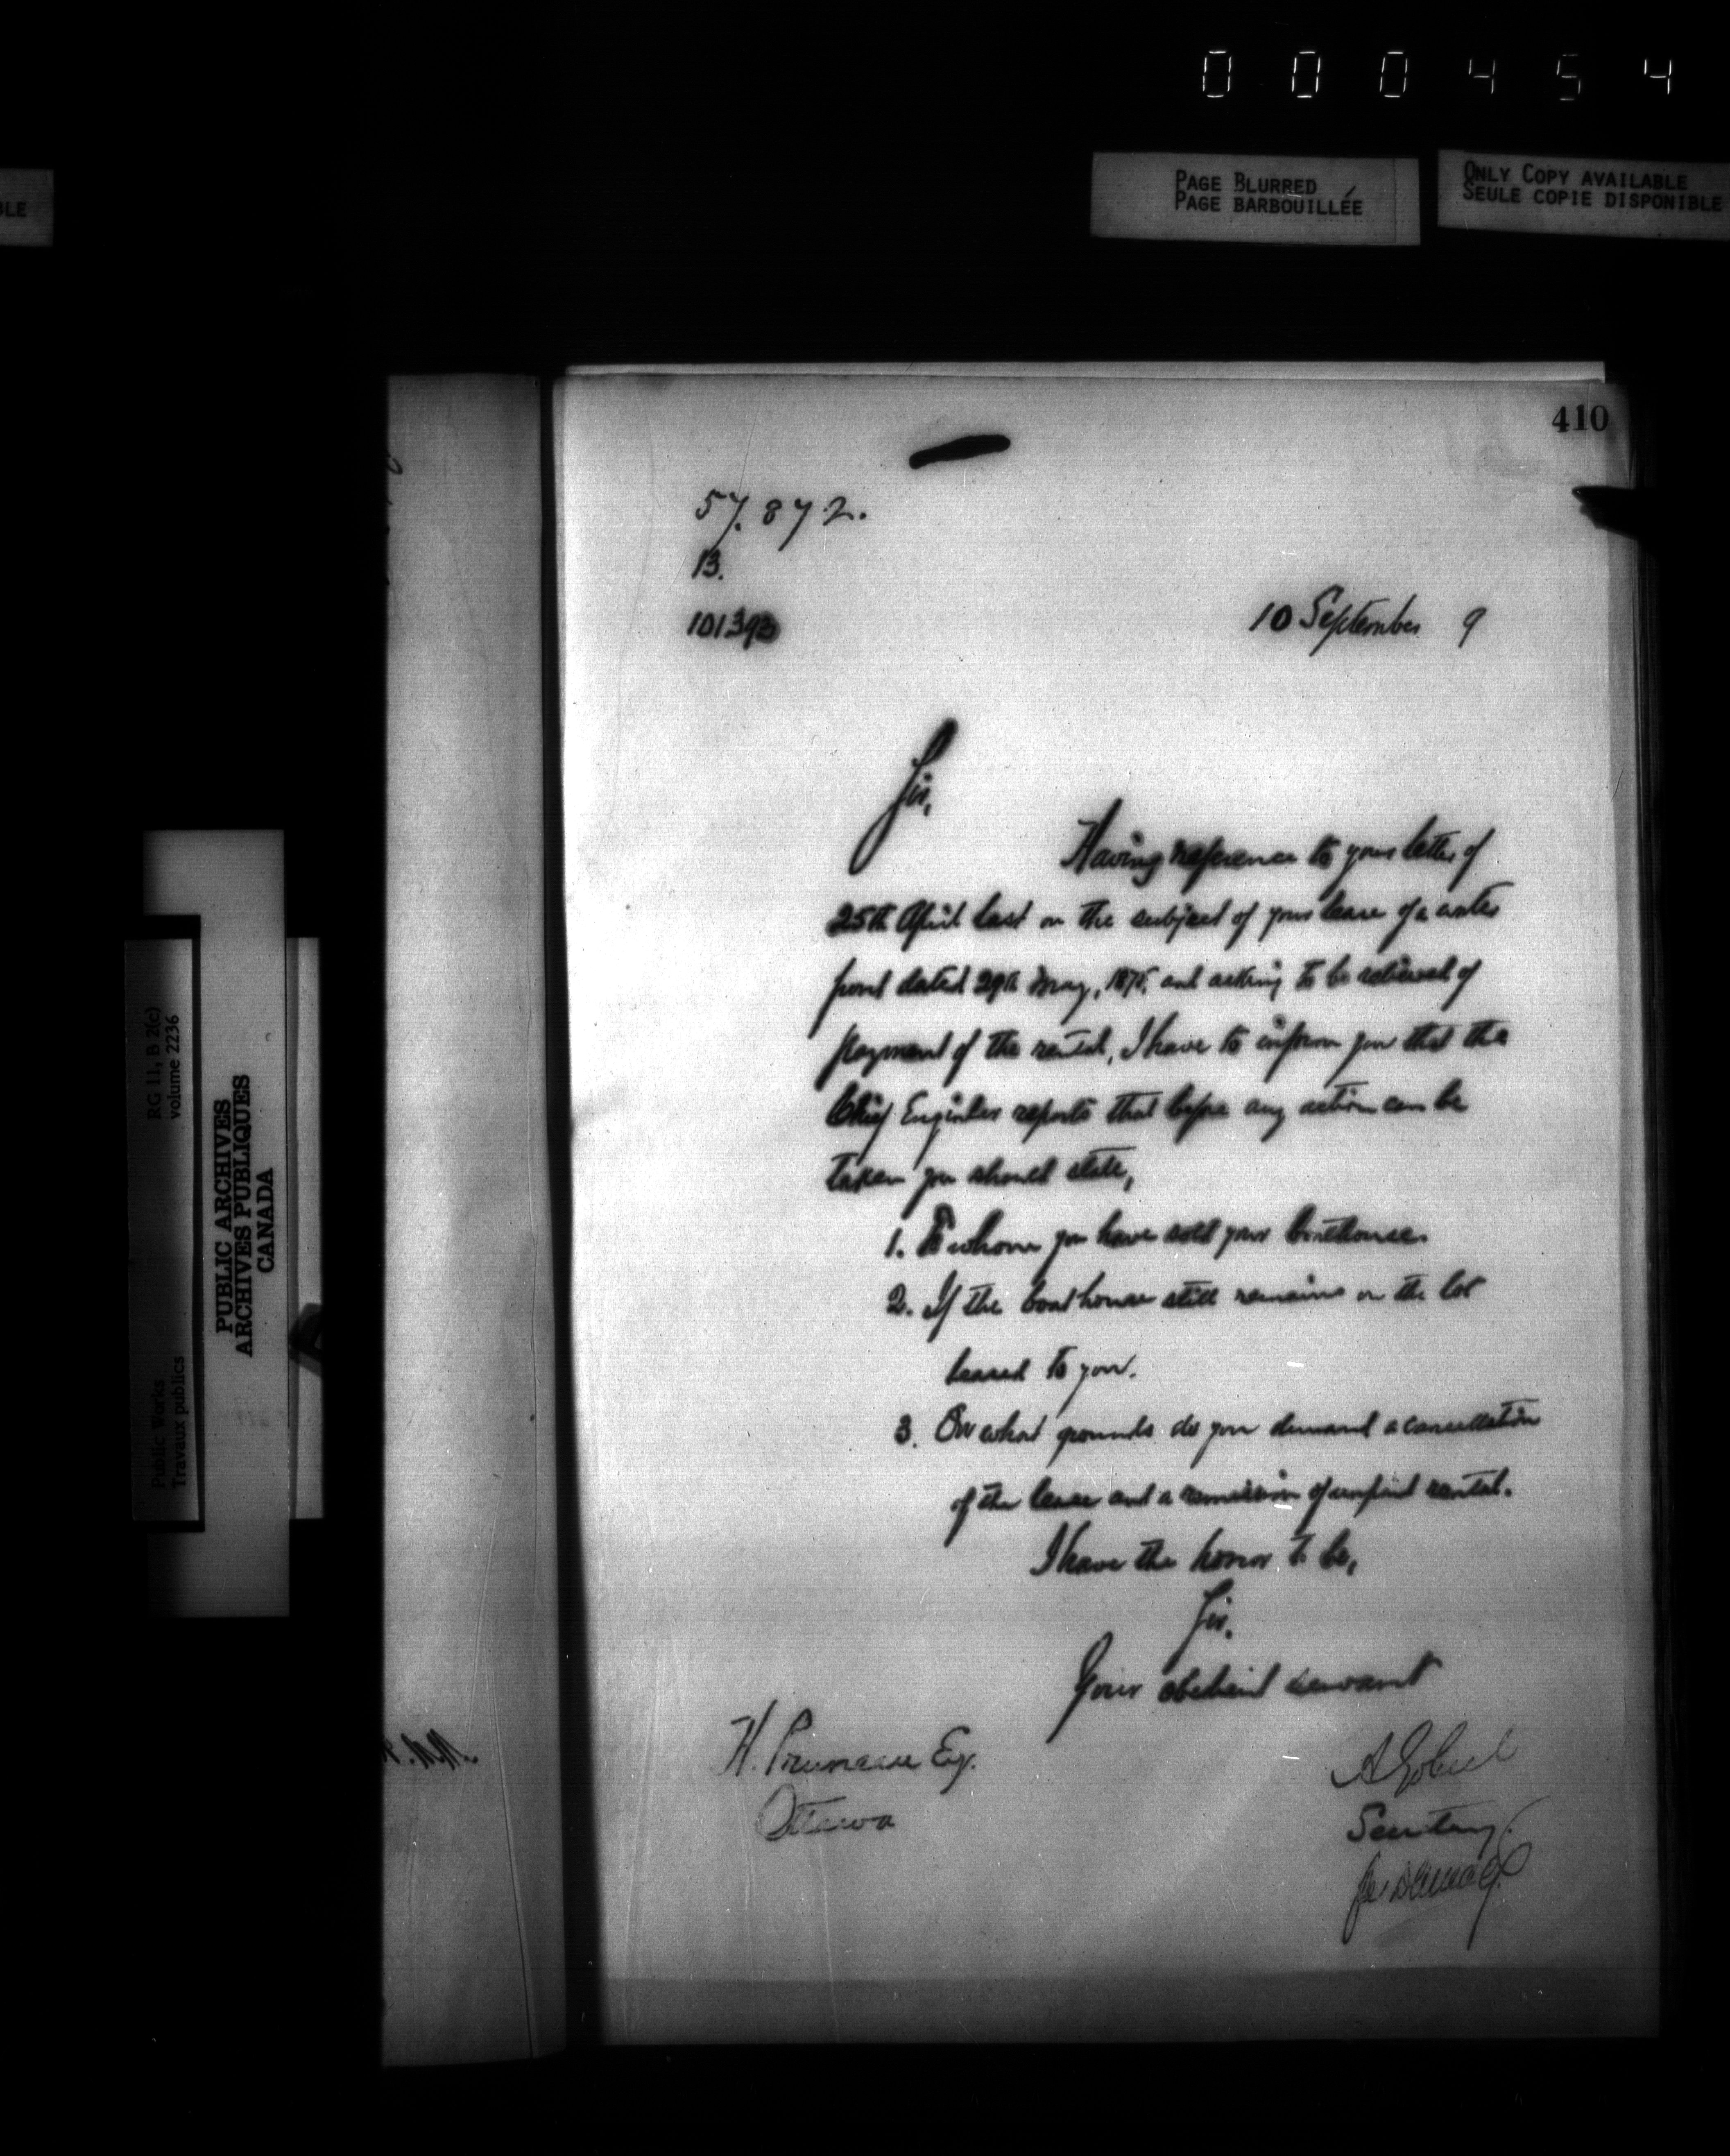 000454
PAGE BLURRED
PAGE BARBOUILLÉE
ONLY COPY AVAILABLE
SEULE COPIE DISPONIBLE
BLE
410
57.872.
13.
10 September 9
Sir,
Having reference to your letter of
25th April last on the subject of your lease of a water
front dated 29th May, 1875, and asking to be relieved of
payment of the rental, I have to inform you that the
Chief Engineer reports that before any action can be
taken you should state,
1. To whom you have sold your boathouse.
2. If the boathouse still remains on the lot
leased to you.
3. On what grounds do you demand a cancellation
of the lease and a remission of unpaid rental.
I have the honor to be,
Sir.
Your obedient servant
H. Esq.
Ottawa
A Gobeil
Secretary.
RG 11, B 2(c)
volume 2236
Public Works
Travaux publics
PUBLIC ARCHIVES
ARCHIVES PUBLIQUES
CANADA